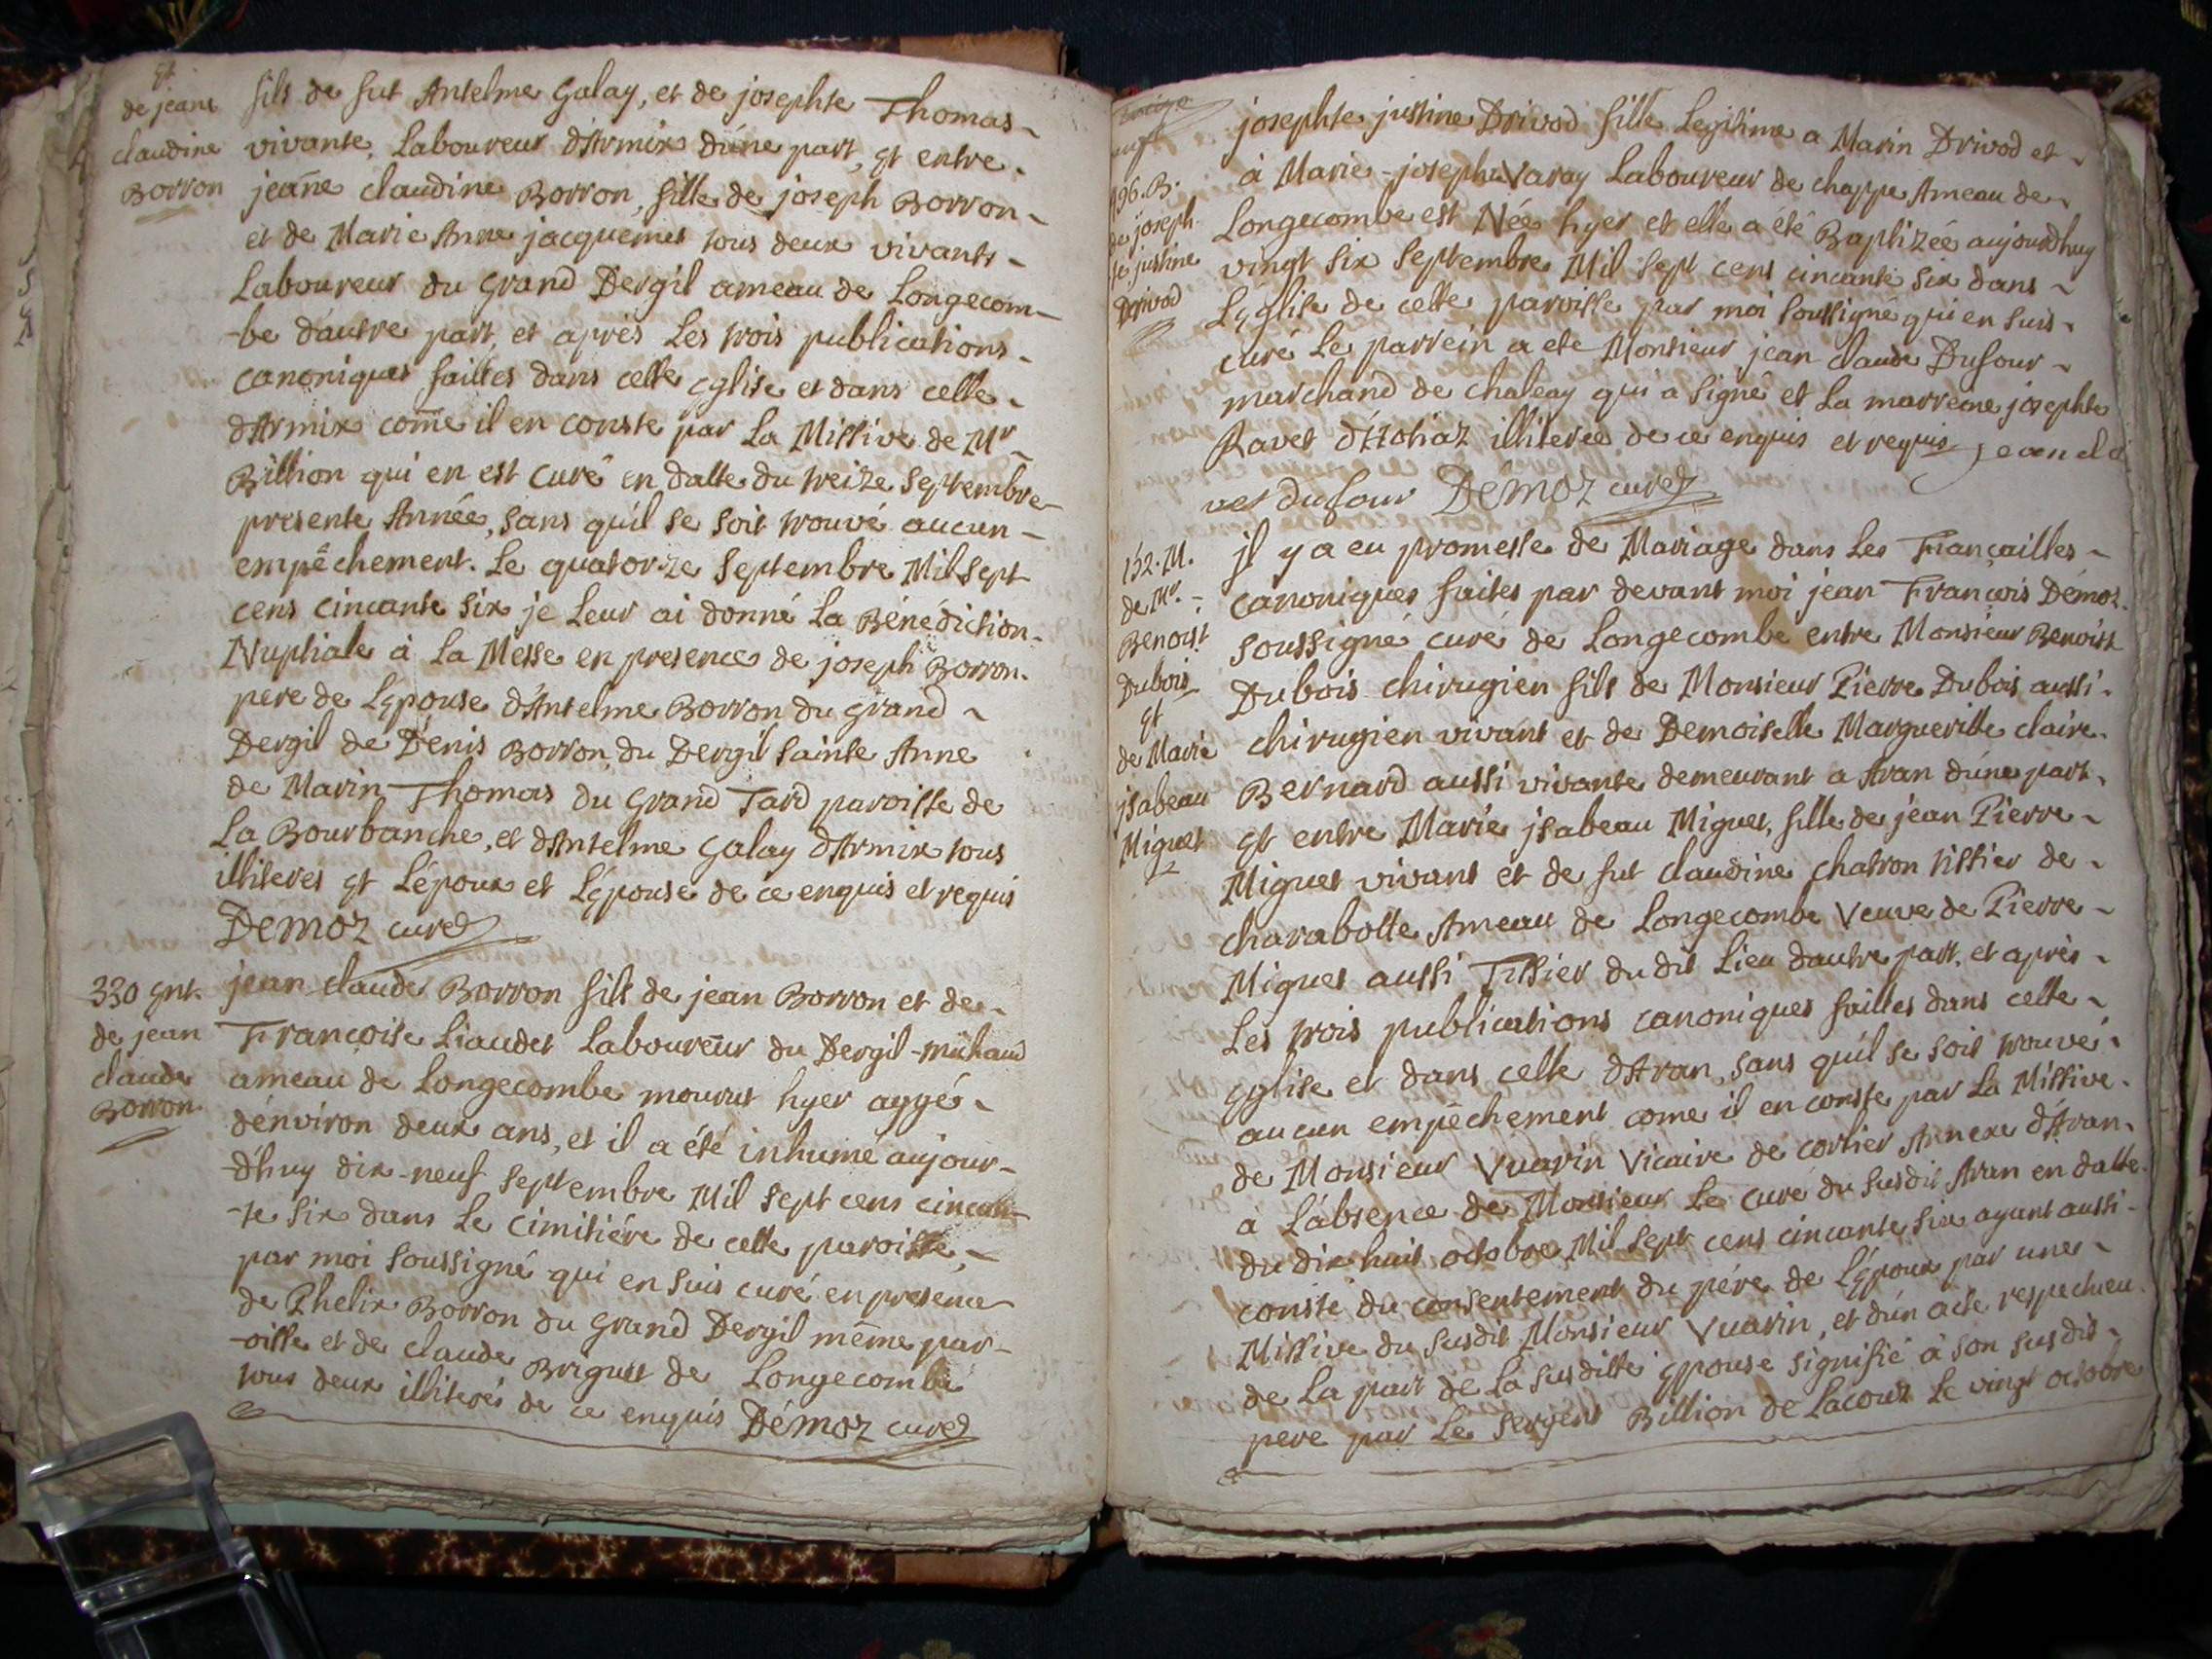 Et
de jeane
claudine
Borron
fils de fut Antelme Galay, et de josephte Thomas
vivante, Laboureur d'Armix d'une part, Et entre
jeañe claudine Borron, fille de joseph Borron
et de Marie Anne jacquemet tous deux vivants
Laboureur du Grand Dergil ameau de Longecom-
-be d'autre part, et aprés Les trois publications
canoniques faittes dans cette Eglise et dans celle
d'Armix com̃e il en conste par La Missive de Mr
Billion qui en est Curé en datte du treize Septembre
presente Année, sans qu'il se soit trouvé aucun
empêchement. Le quatorze Septembre Mil Sept
cens cincante six je Leur ai donné La Bénédiction
Nuptiale à La Messe en presence de joseph Borron
pere de L'Epouse d'Antelme Borron du Grand
Dergil de Denis Borron du Dergil Sainte Anne
de Marin Thomas du Grand Tard paroisse de
La Bourbanche, et d'Antelme Galay d'Armix tous
illiterés Et L'époux et L'Epouse de ce enquis et requis
Démoz curé
330 Ent.
de jean
claude
Borron
jean claude Borron fils de jean Borron et de
Francoise Liaudet Laboureur du Dergil-michaud
ameau de Longecombe mourut hyer aggé
d'énviron deux ans, et il a été inhumé aujour-
-d'huy dix-neuf Septembre Mil Sept cens cincan-
-te six dans Le Cimitiére de cette paroisse,
par moi soussigné qui en suis curé en presence
de Phelix Borron du Grand Dergil même par-
-oisse et de claude Briguet de Longecombe
tous deux illiterés de ce enquis Démoz curé
196. B.
de joseph-
te justine
Drivod
josephte justine Drivod fille Legitime a Marin Drivod et
à Marie-josephe Varay Laboureur de chappe Ameau de
Longecombe est Née hyer et elle a été Baptizée aujourdhuy
vingt six Septembre Mil Sept cens cincante six dans
L'Eglise de cette paroisse par moi soussigné qui en suis
curé Le parrein a ete Monsieur jean claude Dufour
marchand de chaleay qui a signé et La marreine josephte
Ravet d'Hotiaz illiterée de ce enquis et requis jean cl
ver dufour Démoz curé
152. M.
de Mr.
Benoist
Dubois
Et
de Marie
jsabeau
Miguet
jl y a eu promesse de Mariage dans Les Fiançailles
canoniques faites par devant moi jean François Démoz
soussigné curé de Longecombe entre Monsieur Benoist
Dubois chirugien fils de Monsieur Pierre Dubois aussi
chirugien vivant et de Demoiselle Margueritte claire
Bernard aussi vivante demeurant a Aran d'une part
Et entre Marie jsabeau Miguet, fille de jean Pierre
Miguet vivant et de fut claudine chatron tissier de
charabotte Ameau de Longecombe Veuve de Pierre
Miguet aussi Tissier du dit Lieu d'autre part, et aprés
Les trois publications canoniques faittes dans cette
Eglise et dans celle d'Aran, sans qu'il se soit trouvé
aucun empêchement come il en conste par La Missive
de Monsieur Vuarin Vicaire de corlier Annexe d'Aran
à L'absence de Monsieur Le Curé du susdit Aran en datte
du dix huit octobre Mil Sept cens cincante six ayant aussi
consté du consentement du pére de L'Epoux par une
Missive du susdit Monsieur Vuarin, et d'ún acte respectueu
de La part de La susditte Epouse signifié à son susdit
pere par Le sergent Billion de Lacoux Le vingt octobre